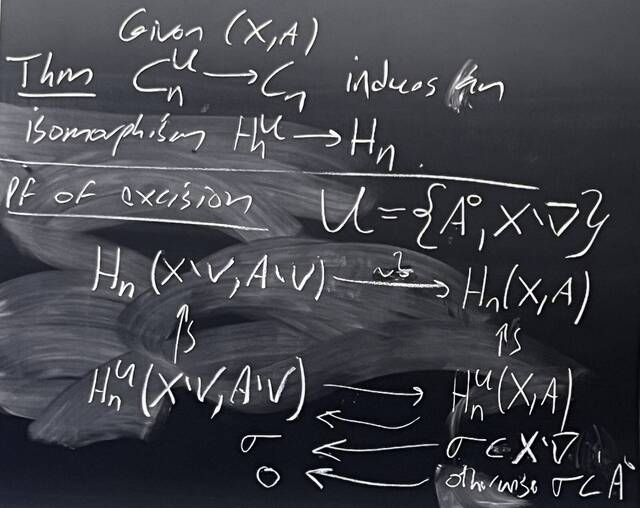 Given (X,A)
Thm C_n^U → C_n induces an
isomorphism H_n^U → H_n.
Pf of excision U = {A°, X∖V̄}
H_n(X∖V, A∖V) →^{~?} H_n(X,A)
↑≀ ↑≀
H_n^U(X∖V, A∖V) ⇄ H_n^U(X,A)
σ ← σ ⊂ X∖V̄
0 ← otherwise σ ⊂ A°